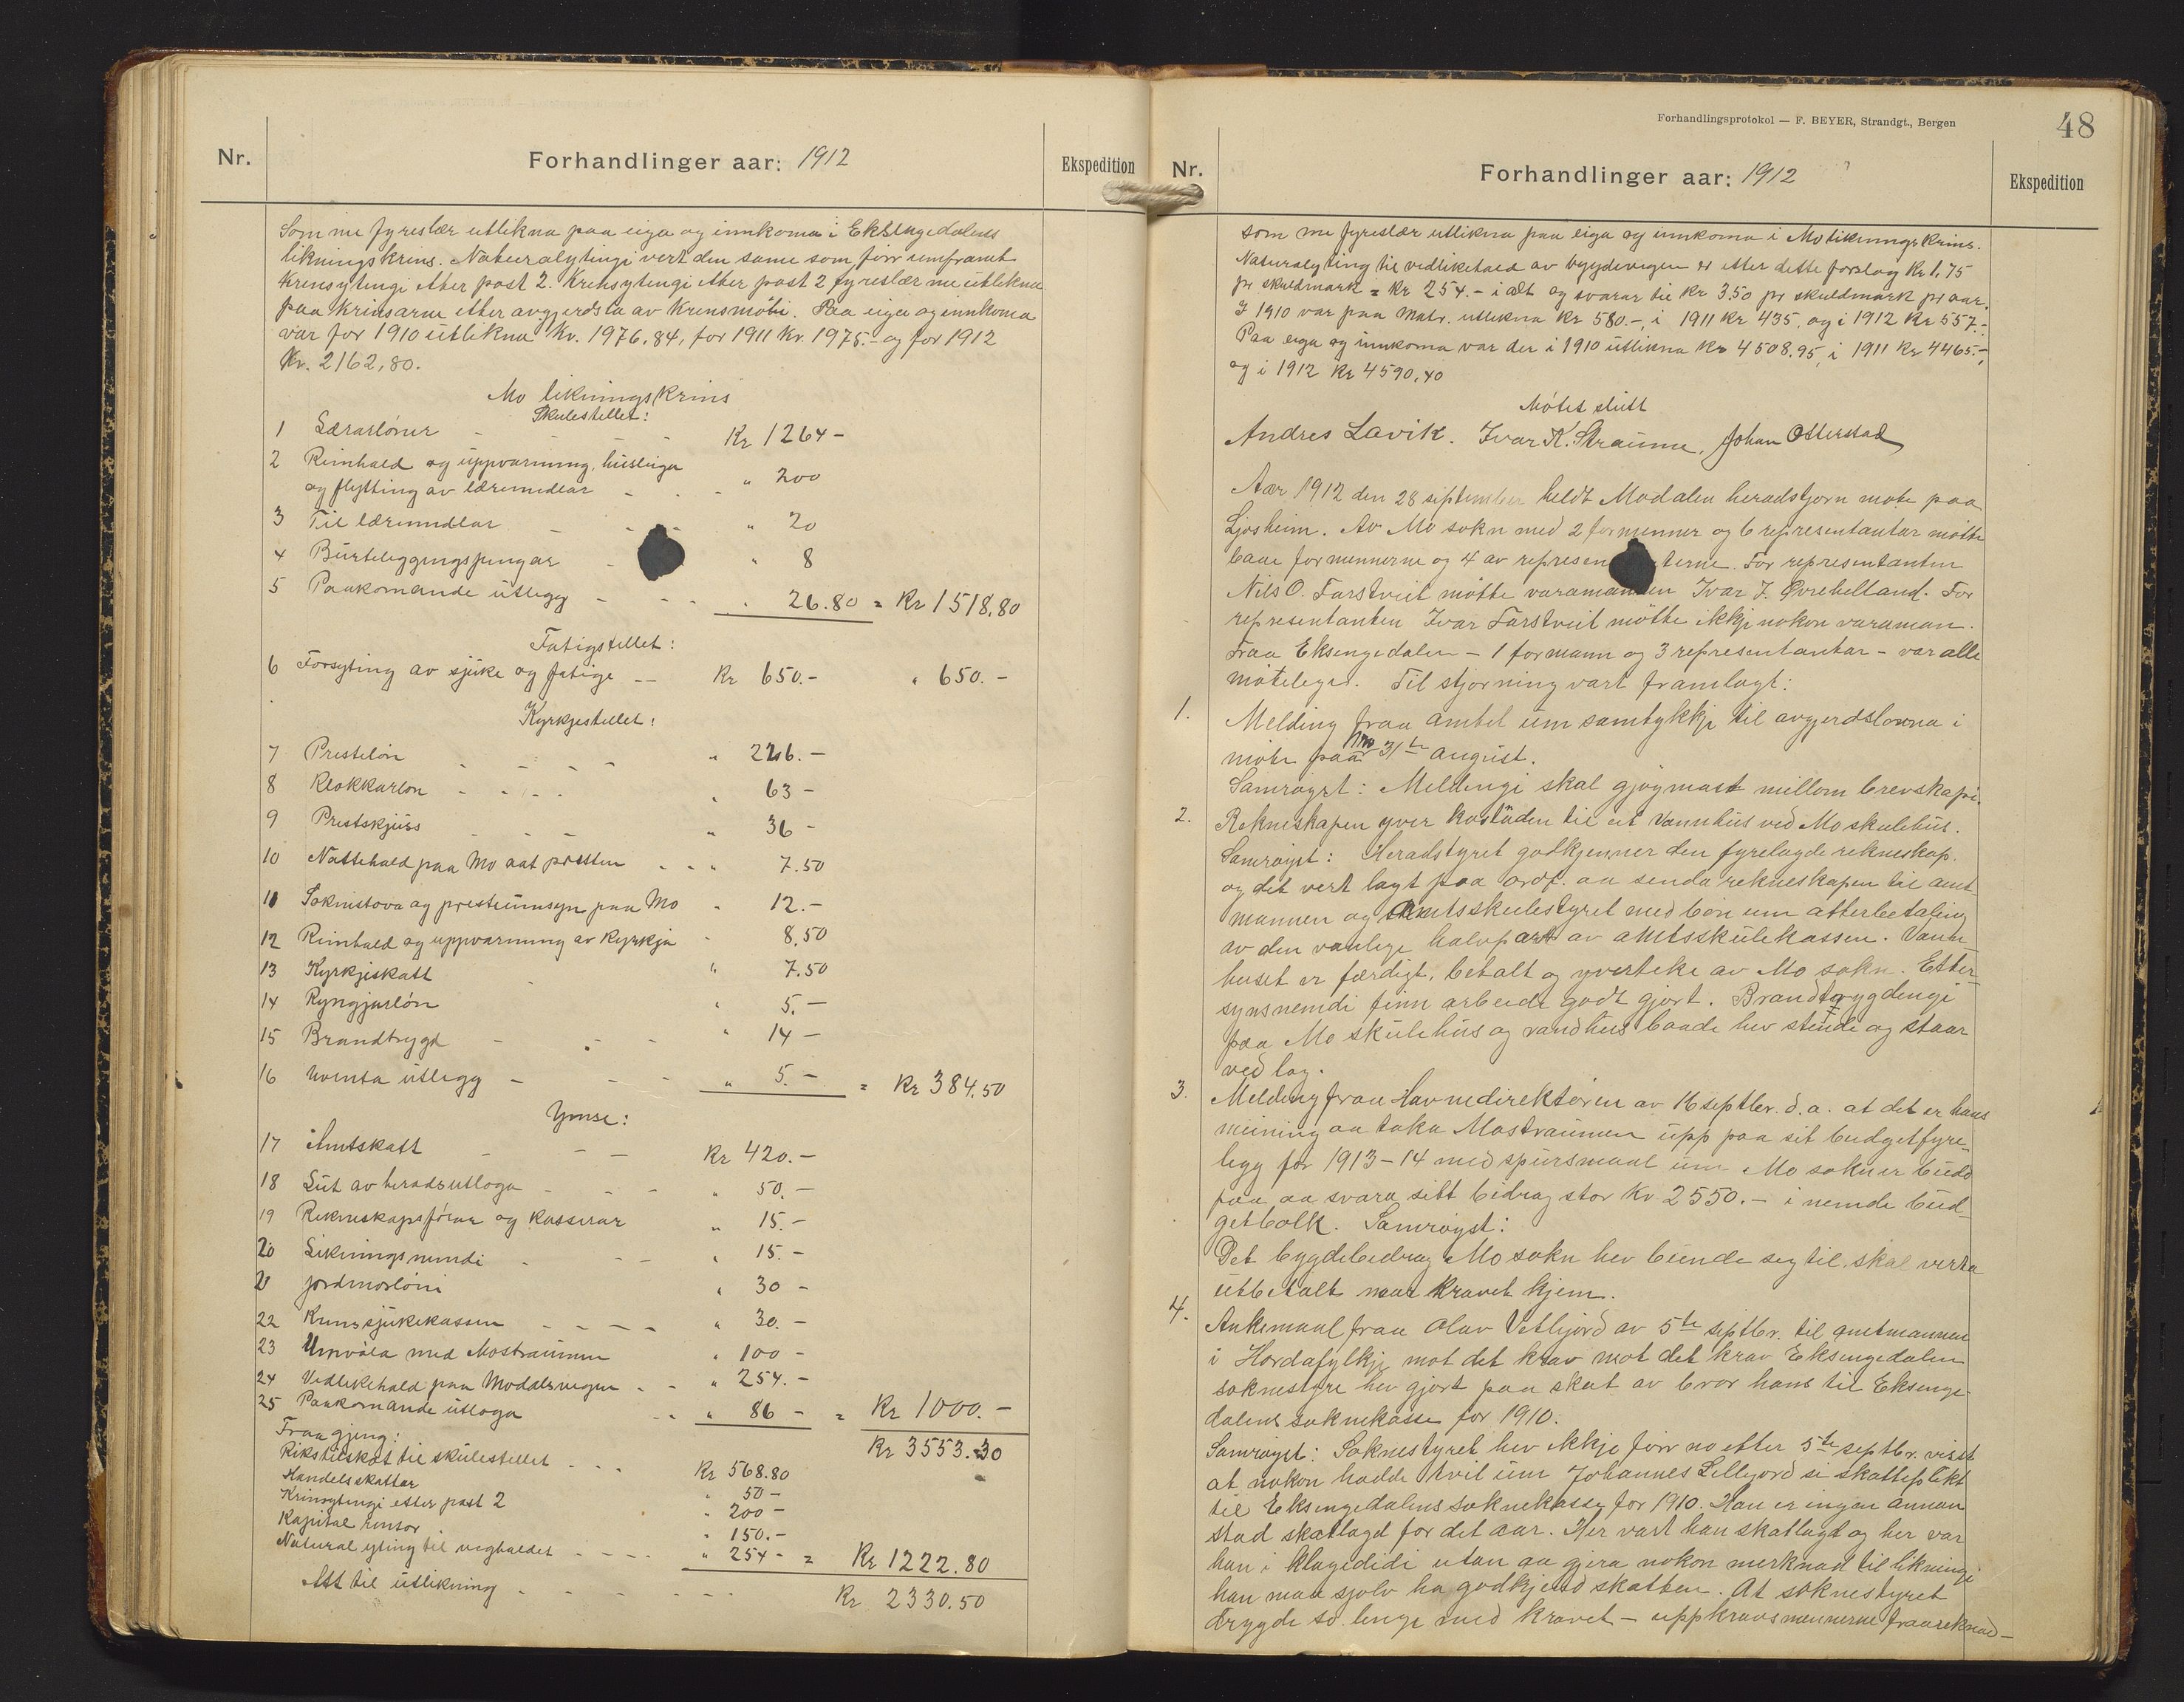 Nr.
Forhandlinger aar: 1912
Ekspedition
Som me fyreslær utlikna paa eiga og innkoma i Eksingedalens
likningskrins. Naturalytingi vert den same som fyrr umframt
krinsytingi etter post 2. Krinsytingi etter post 2 fyreslær me utlikna
paa krinsarne etter avgjerdsla av krinsmøti. Paa eiga og innkoma
var for 1910 utlikna Kr. 1976,84, for 1911 Kr. 1975.- og for 1912
Kr. 2162,80.
Mo likningskrins
Skulestellet:
1 Lærarløner - - - - Kr 1264 -
2 Reinhald og uppvarming, husleiga
og flytting av læremidlar - - - " 200
3 Til læremidlar - - - " 20
4 Burteleggingspengar - " 8
5 Paakomande utlegg - - - " 26.80 = Kr 1518,80
Fatigstellet:
6 Forsyting av sjuke og fatige -- Kr 650.- " 650.-
Kyrkjestellet:
7 Presteløn - - - - " 226.-
8 Klokkarløn - - - - " 63 -
9 Prestskjuss - - - " 36 -
10 Nattehald paa Mo aat presten - - " 7.50
11 Soknistova og presteinnsyn paa Mo - 12.-
12 Reinhald og uppvarming av kyrkja - 8,50
13 Kyrkjeskatt - " 7.50
14 Ryngjarløn " 5.-
15 Brandtrygd - - - " 14 -
16 Uventa utlegg - - - " 5.- = Kr 384.50
Ymse:
17 Amtskatt - - - Kr 420.-
18 Lut av heradsutloga - - - " 50.-
19 Rekneskapsførar og kasserar " 15.-
20 Likningsnemdi - - - " 15.-
21 Jordmorløni " 30 -
22 Krinssjukekassen - - - - " 30.-
23 Umvøla med Mostraumen " 100 -
24 Vedlikehald paa Modalsvegen - - " 254.-
25 Paakomande utloga - - " 86 - = Kr 1000.-
Kr 3553.30
Fraa gjeng:
Rikstilskot til skulestellet - - - Kr 568.80
Handelsskattar " 50 -
Krinsytingi etter post 2 " 200 -
Kapital rentor " 150.-
Natural yting til veghaldet - - - - " 254 - = Kr 1222.80
Att til utlikning - - - - - - Kr 2330.50
Forhandlingsprotokol — F. BEYER, Strandgt., Bergen
48
Nr.
Forhandlinger aar: 1912
Ekspedition
som me fyreslær utlikna paa eiga og innkoma i Mo likningskrins.
Naturalyting til vedlikehald av bygdevegen er etter dette forslag Kr 1,75
pr skuldmark = Kr 254.- i alt og svarar til Kr 3.50 pr skuldmark pr aar.
I 1910 var paa matr. utlikna Kr 580.-, i 1911 Kr 435, og i 1912 Kr 557.-
Paa eiga og innkoma var der i 1910 utlikna Kr 4508.95, i 1911 Kr 4465.-,
og i 1912 Kr 4590,40
Møtet slutt
Andres Lavik. Ivar K. Straume, Johan Otterstad
Aar 1912 den 28 september heldt Modalen heradstjorn møte paa
Ljosheim. Av Mo sokn med 2 formenner og 6 representantar møtte
baae formennerne og 4 av represen terne. For representanten
Nils O. Farstveit møtte varamannen Ivar J. Øvrehelland. For
representanten Ivar Farstveit møtte ikkje nokon varaman.
Fraa Eksingedalen - 1 formann og 3 representantar - var alle
møtelege. Til stjorning vart framlagt:
1. Melding fraa amtet um samtykkje til avgjerdslorna i
møte paa Mo 31te august.
Samrøyst: Meldingi skal gjøymast millom brevskapi.
2. Rekneskapen yver kostnaden til eit vannhus ved Mo skulehus.
Samrøyst: Heradstyret godkjenner den fyrelagde rekneskap.
og det vert lagt paa ordf. aa senda rekneskapen til amt-
mannen og Amtsskulestyret med bøn um atterbetaling
av den vanlege halvpart av amtsskulekassen. Vann-
huset er færdigt, betalt og yverteke av Mo sokn. Etter-
synsnemdi finn arbeidet godt gjort. Brandtrygdingi
paa Mo skulehus og vandhus baade hev stende og staar
ved lag.
3. Melding fraa Havnedirektøren av 16 septbr. d.a. at det er hans
meining aa taka Mostraumen upp paa sit budgetfyre-
legg for 1913-14 med spursmaal um Mo sokn er budd
paa aa svara sitt bidrag stor Kr 2550.- i nemde bud-
getbolk. Samrøyst:
Det bygdebidrag Mo sokn hev bunde seg til skal verta
utbetalt naar kravet kjem.
4. Ankemaal fraa Olav Vetlejord av 5te septbr. til amtmannen
i Hordafylkje mot det krav mot det krav Eksingedalen
soknestyre hev gjort paa skat av bror hans til Eksinge-
dalens soknekasse for 1910.
Samrøyst: Soknestyret hev ikkje fyrr no etter 5te septbr. visst
at nokon hadde tvil um Johannes Lillejord si skatteplikt
til Eksingedalens soknekasse for 1910. Han er ingen annan
stad skatlagd for det aar. Her vart han skatlagd og her var
han i klagedidi utan aa gjera nokon merknad til likningi
han maa sjolv ha godkjend skatten. At soknestyret
drygde so lenge med kravet - uppkravsmennerne fraareknad-